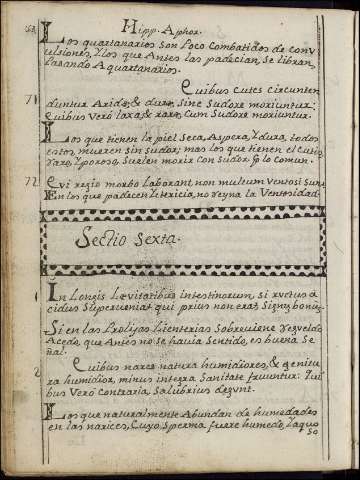 68 Hipp. Aphor.
Los quartanarios son Poco Combatidos de conv
ulsiones, Y los que Antes las padecian, se libran,
Pasando A quartanarios.
Quibus cutes circunten
71 duntur Aridæ, & duræ, sine Sudore moriuntur:
quibus Verò laxæ, & raræ, Cum Sudore moriuntur.
Los que tienen la piel Seca, Aspera, Y dura, todos
estos, mueren sin sudor; mas los que tienen el cutis
raro, Y poroso, Suelen morir con Sudor Por lo Comun.
72 Qui regio morbo Laborant non multum Ventosi Sunt
En los que padecen Ictericia, no reyna la Ventosidad.
Sectio Sexta.
1 In Longis Lævitatibus intestinorum, si ructus a
cidus Superveniat qui prius non erat, Signũ bonũ.
Si en las Prolijas Lienterias Sobreviene regueldo
Acedo, que Antes no se havia Sentido, es buena Se
ñal.
2 Quibus nares natura humidiores, & genitu
ra humidior, minus integra Sanitate fruuntur: qui
bus Verò Contraria, Salubrius degunt.
Los que naturalmente Abundan de humedades
en las narices, Cuyo Sperma fuere humedo, Y aquo
so